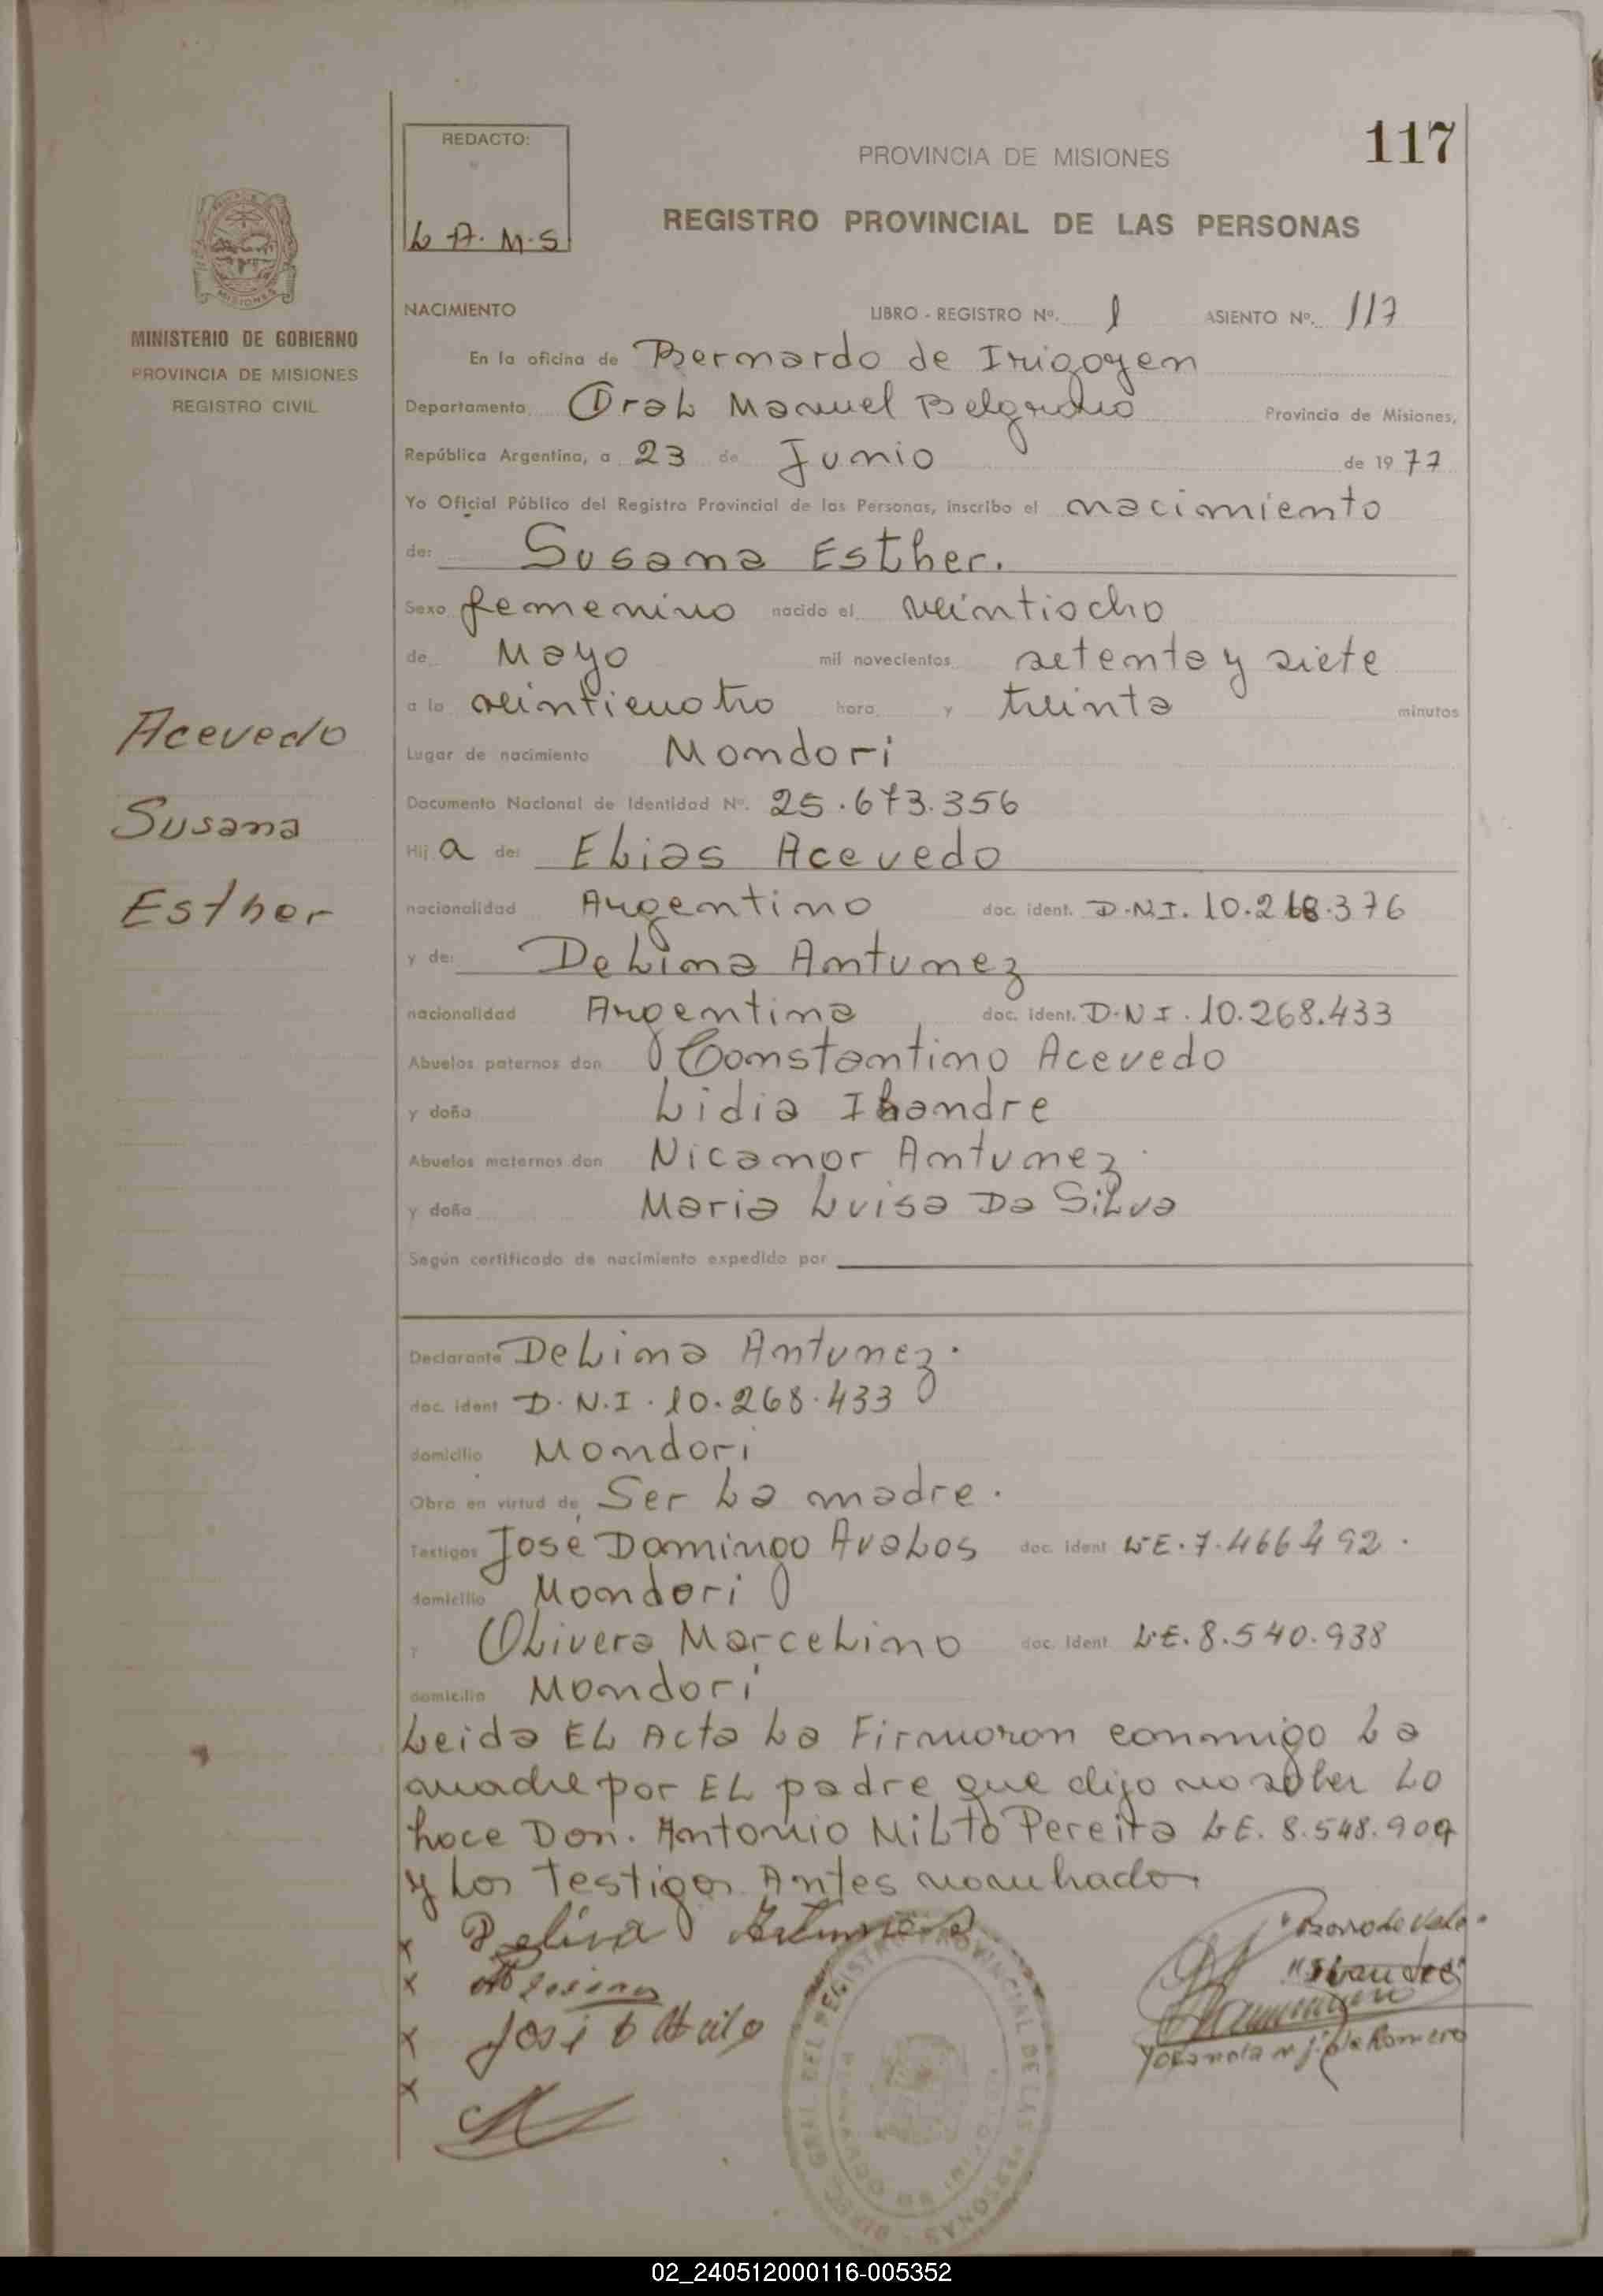 REDACTO:
L A. M. S
PROVINCIA DE MISIONES
117
REGISTRO PROVINCIAL DE LAS PERSONAS
MISIONES
MINISTERIO DE GOBIERNO
PROVINCIA DE MISIONES
REGISTRO CIVIL
NACIMIENTO LIBRO - REGISTRO Nº. 1 ASIENTO Nº. 117
En la oficina de Bernardo de Irigoyen
Departamento Gral Manuel Belgrano Provincia de Misiones,
República Argentina, a 23 de Junio de 1977
Yo Oficial Público del Registro Provincial de las Personas, inscribo el nacimiento
de: Susana Esther.
Sexo femenino nacido el veintiocho
de Mayo mil novecientos setenta y siete
a la veinticuatro hora y treinta minutos
Lugar de nacimiento Mondori
Documento Nacional de Identidad Nº. 25.673.356
Hij a de: Elias Acevedo
nacionalidad Argentino doc. ident. D.N.I. 10.268.376
y de: Delima Antunez
nacionalidad Argentina doc. ident. D.N.I. 10.268.433
Abuelos paternos don Constantino Acevedo
y doña Lidia
Abuelos maternos don Nicanor Antunez
y doña Maria Luisa Da Silva
Según certificado de nacimiento expedido por
Acevedo
Susana
Esther
Declarante Delima Antunez.
doc. ident D.N.I. 10.268.433
domicilio Mondori
Obra en virtud de Ser La madre.
Testigos José Domingo Avalos doc. ident L.E. 7.466.492.
domicilio Mondori
y Olivera Marcelino doc. ident L.E. 8.540.938
domicilio Mondori
Leida El Acta La Firmaron conmigo La
madre por El padre que dijo no saber Lo
hace Don. Antonio Milto Pereira L.E. 8.548.909
y Los Testigos Antes nombrados
x
x
x
x
Romero
REGISTRO PROVINCIAL DE LAS PERSONAS
02_240512000116-005352